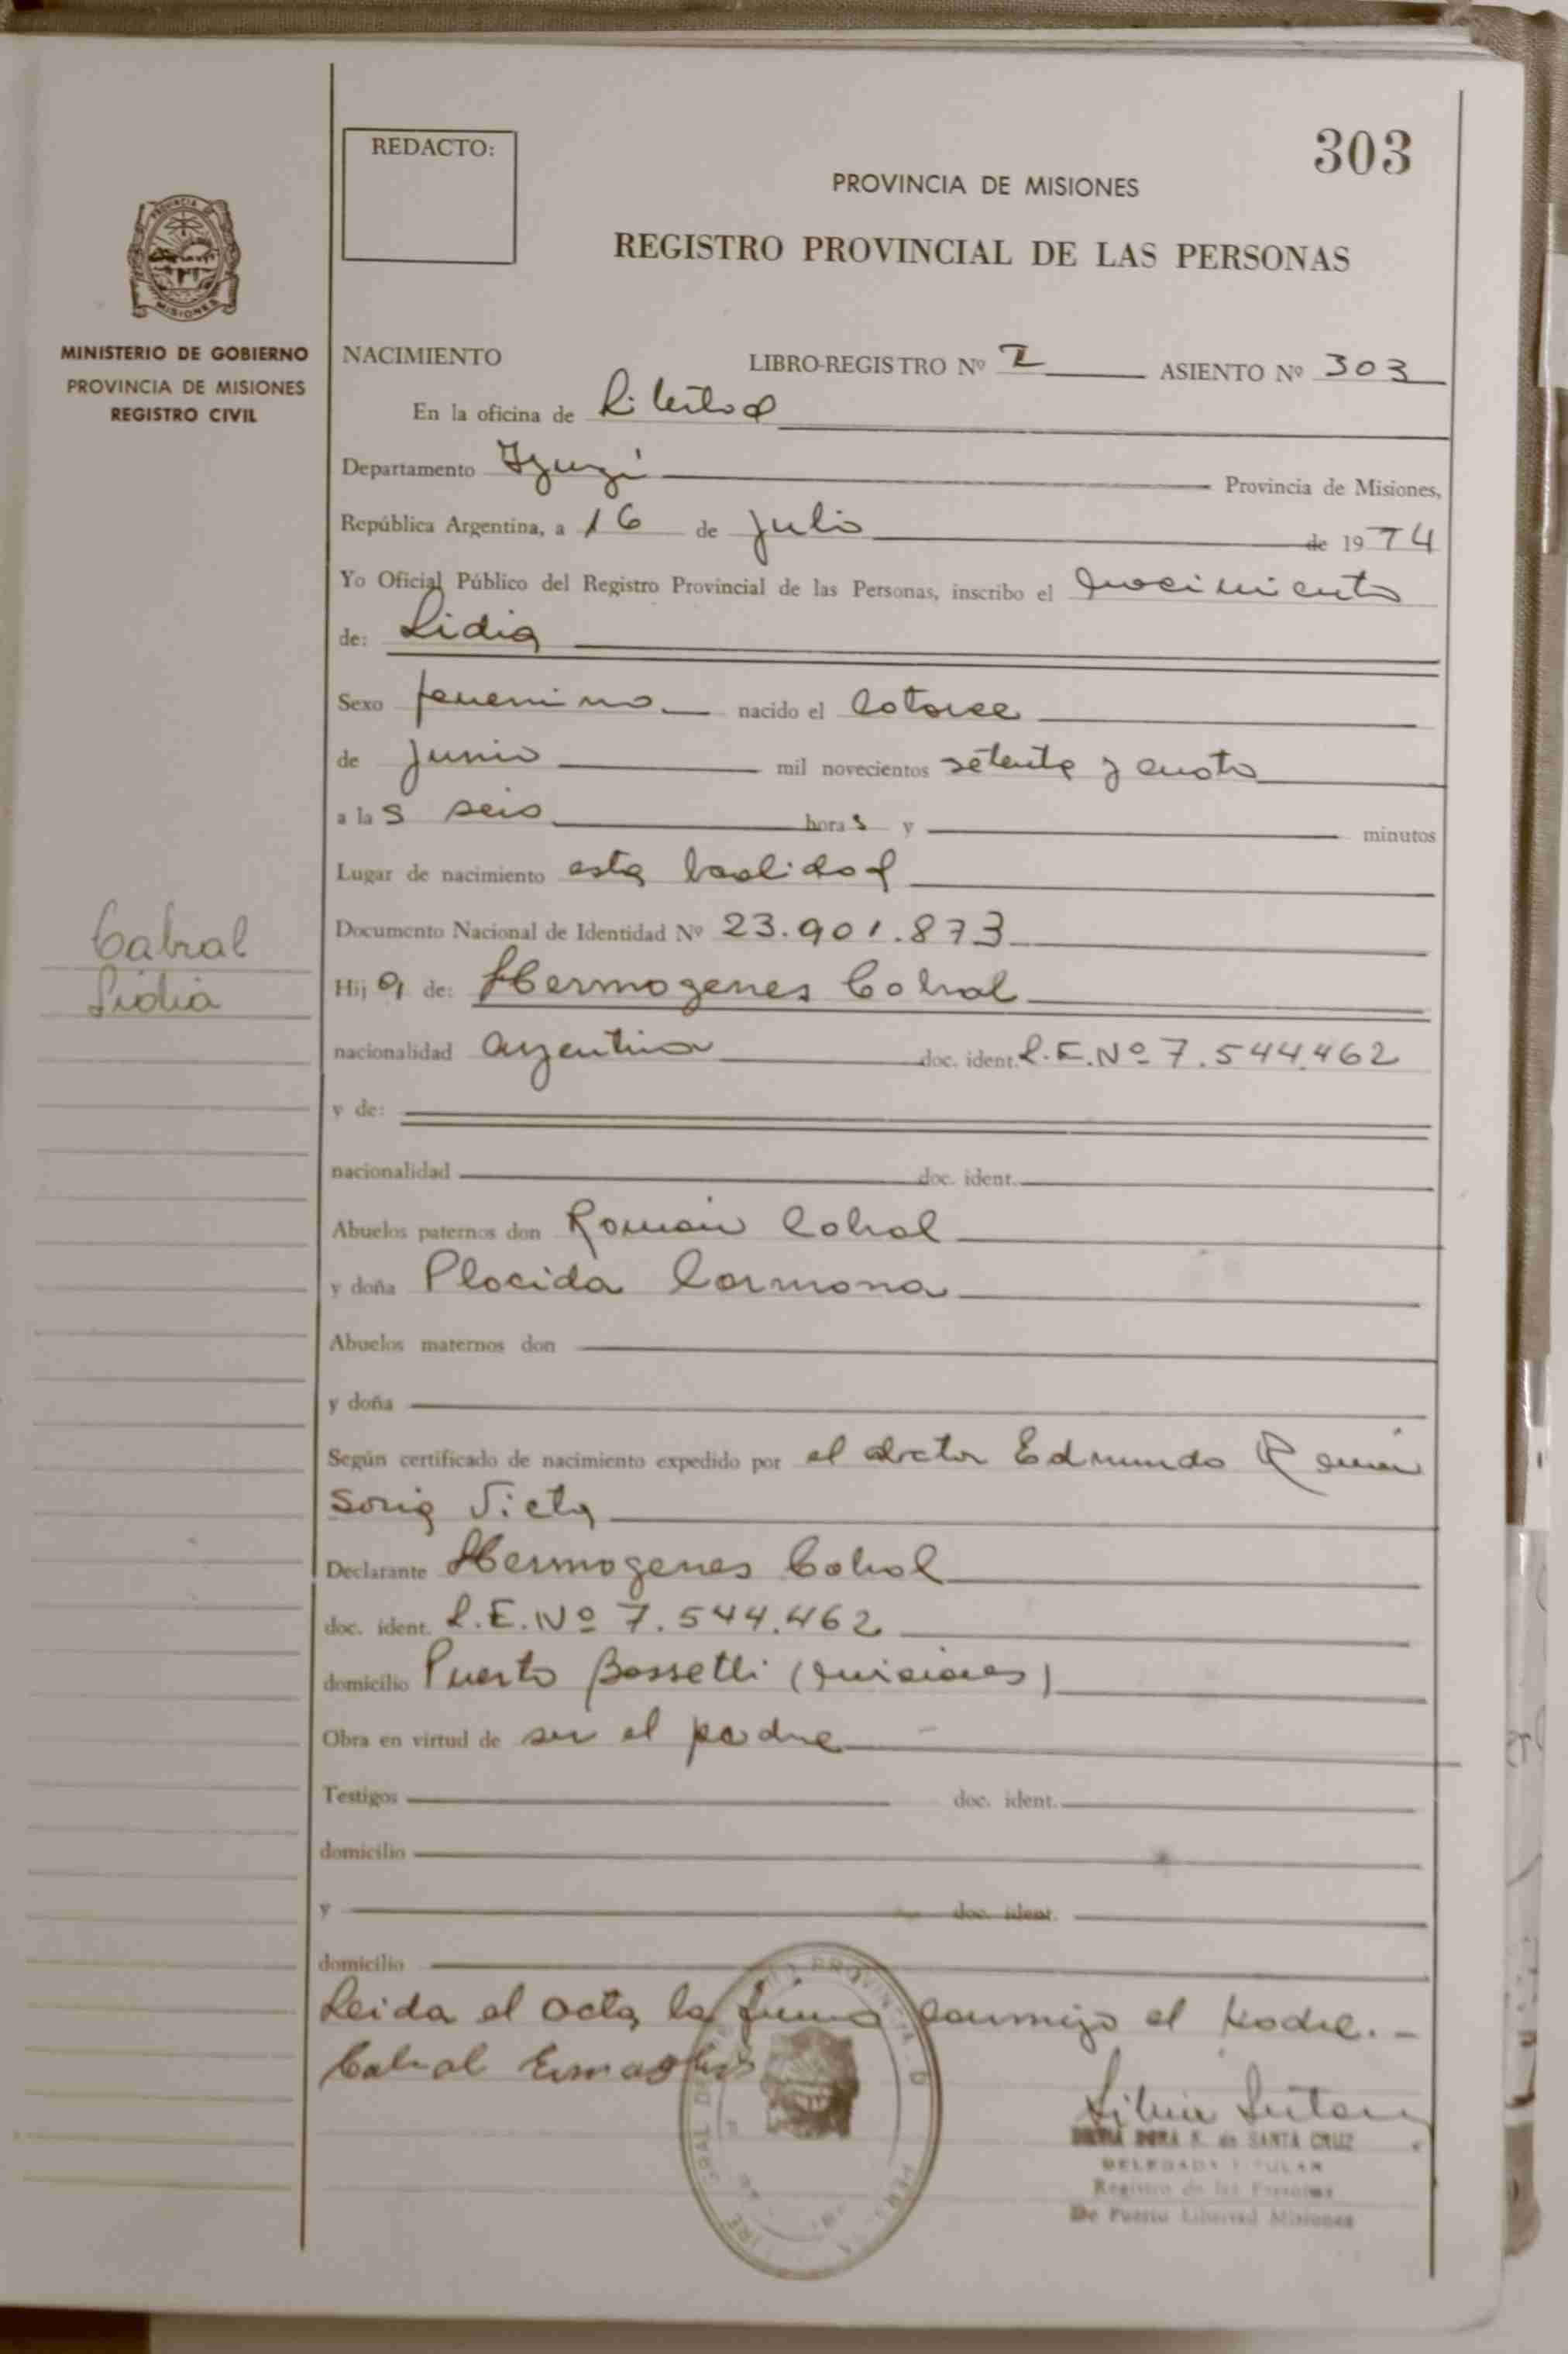 303
REDACTO:
PROVINCIA DE MISIONES
REGISTRO PROVINCIAL DE LAS PERSONAS
MINISTERIO DE GOBIERNO
PROVINCIA DE MISIONES
REGISTRO CIVIL
NACIMIENTO LIBRO-REGISTRO Nº I ASIENTO Nº 303
En la oficina de Libertad
Departamento Iguazú Provincia de Misiones,
República Argentina, a 16 de Julio de 1974
Yo Oficial Público del Registro Provincial de las Personas, inscribo el nacimiento
de: Lidia
Sexo femenino nacido el catorce
de Junio mil novecientos setenta y cuatro
a las seis horas y minutos
Lugar de nacimiento esta localidad
Documento Nacional de Identidad Nº 23.901.873
Cabral
Lidia
Hija de: Hermogenes Cabral
nacionalidad argentina doc. ident. L.E.Nº 7.544.462
y de:
nacionalidad doc. ident.
Abuelos paternos don Román Cabral
y doña Placida Carmona
Abuelos maternos don
y doña
Según certificado de nacimiento expedido por el doctor Edmundo Ramón
Soria Vieta
Declarante Hermogenes Cabral
doc. ident. L.E.Nº 7.544.462
domicilio Puerto Bossetti (Misiones)
Obra en virtud de ser el padre
Testigos doc. ident.
domicilio
y doc. ident.
domicilio
Leida el acta la firma conmigo el padre. -
Cabral
SILVIA DORA K. de SANTA CRUZ
DELEGADA TITULAR
Registro de las Personas
De Puerto Libertad Misiones